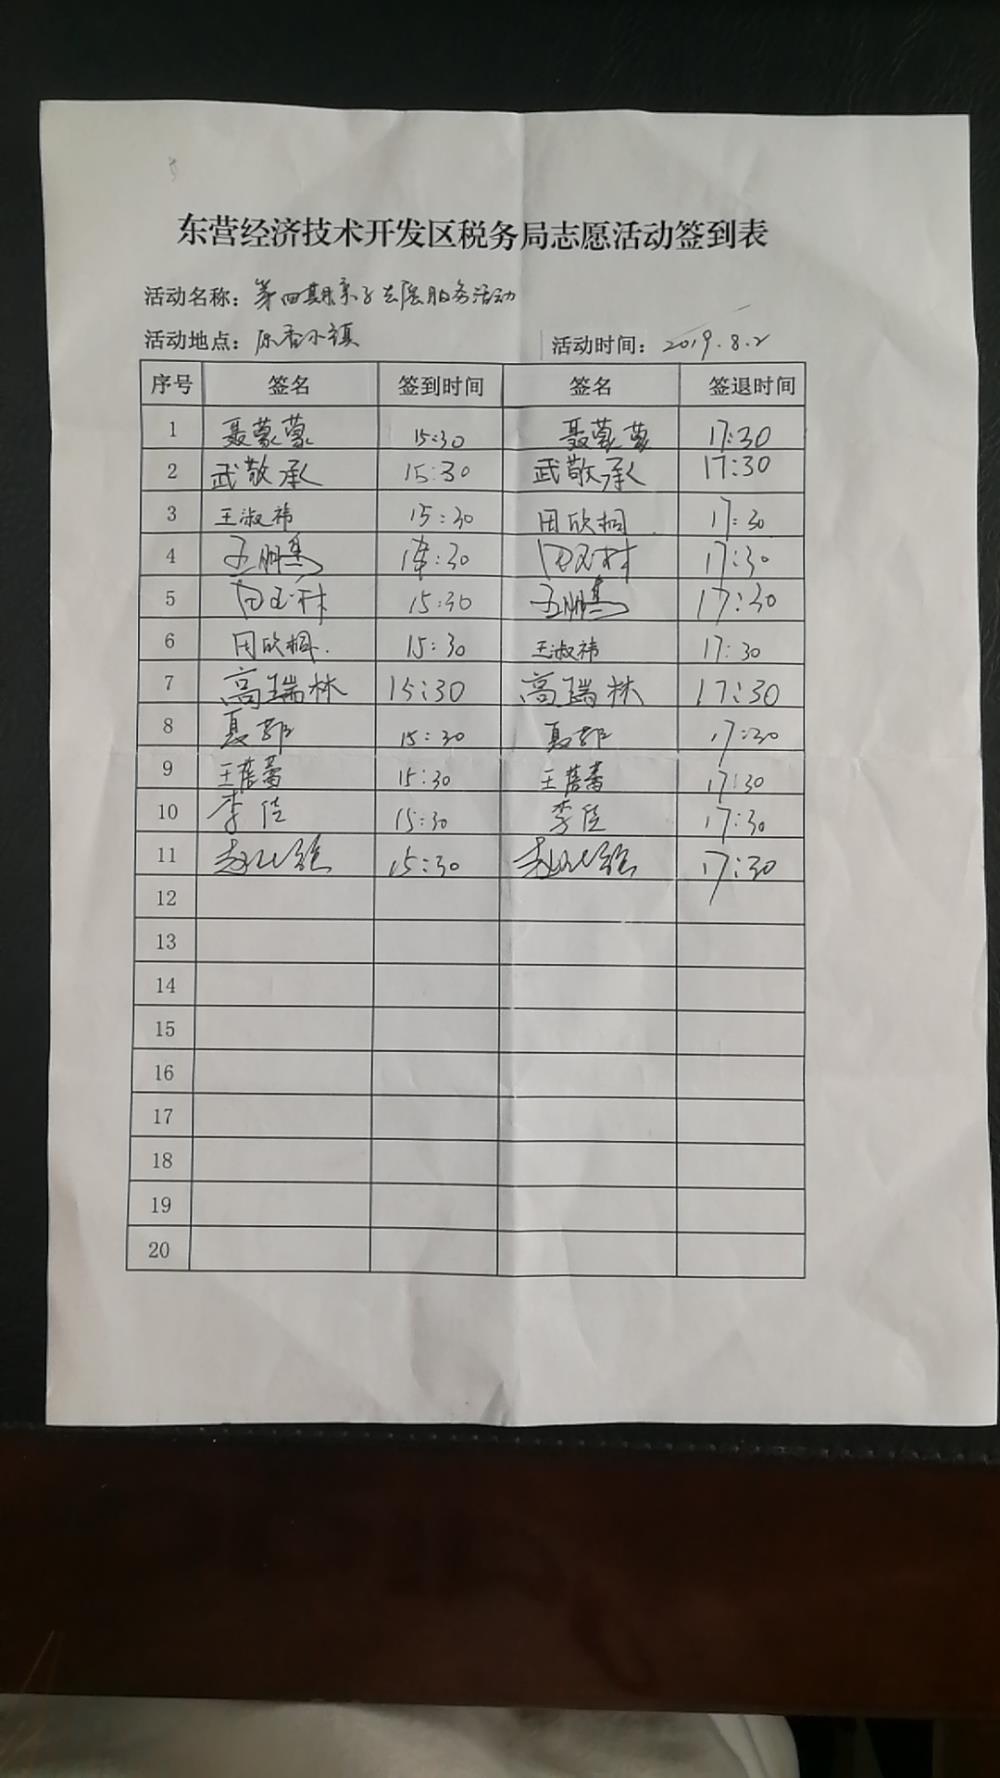 东营经济技术开发区税务局志愿活动签到表
活动名称：第四期亲子志愿服务活动
活动地点：原香小镇 活动时间：2019.8.2
序号 签名 签到时间 签名 签退时间
1 聂蒙蒙 15:30 聂蒙蒙 17:30
2 武敬承 15:30 武敬承 17:30
3 王淑祎 15:30 田欣桐 17:30
4 王鹏 15:30 田玉林 17:30
5 田玉林 15:30 王鹏 17:30
6 田欣桐. 15:30 王淑祎 17:30
7 高瑞林 15:30 高瑞林 17:30
8 15:30 17:30
9 王蓓蕾 15:30 王蓓蕾 17:30
10 李佳 15:30 李佳 17:30
11 15:30 17:30
12
13
14
15
16
17
18
19
20